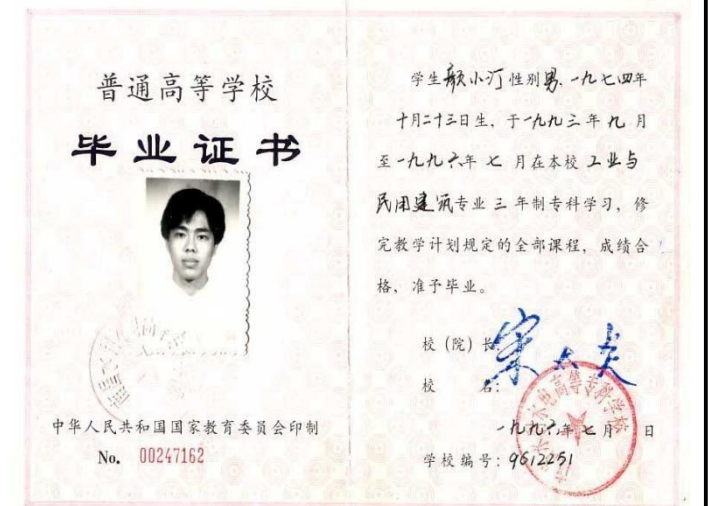 普通高等学校
毕业证书
中华人民共和国国家教育委员会印制
No. 00247162
学生颜小汀性别男、一九七四年
十月二十三日生、于一九九三年九月
至一九九六年七月在本校工业与
民用建筑专业三年制专科学习，修
完教学计划规定的全部课程，成绩合
格，准予毕业。
校（院）长：
校名：
水电高等专科学校
一九九六年七月日
学校编号：9612251